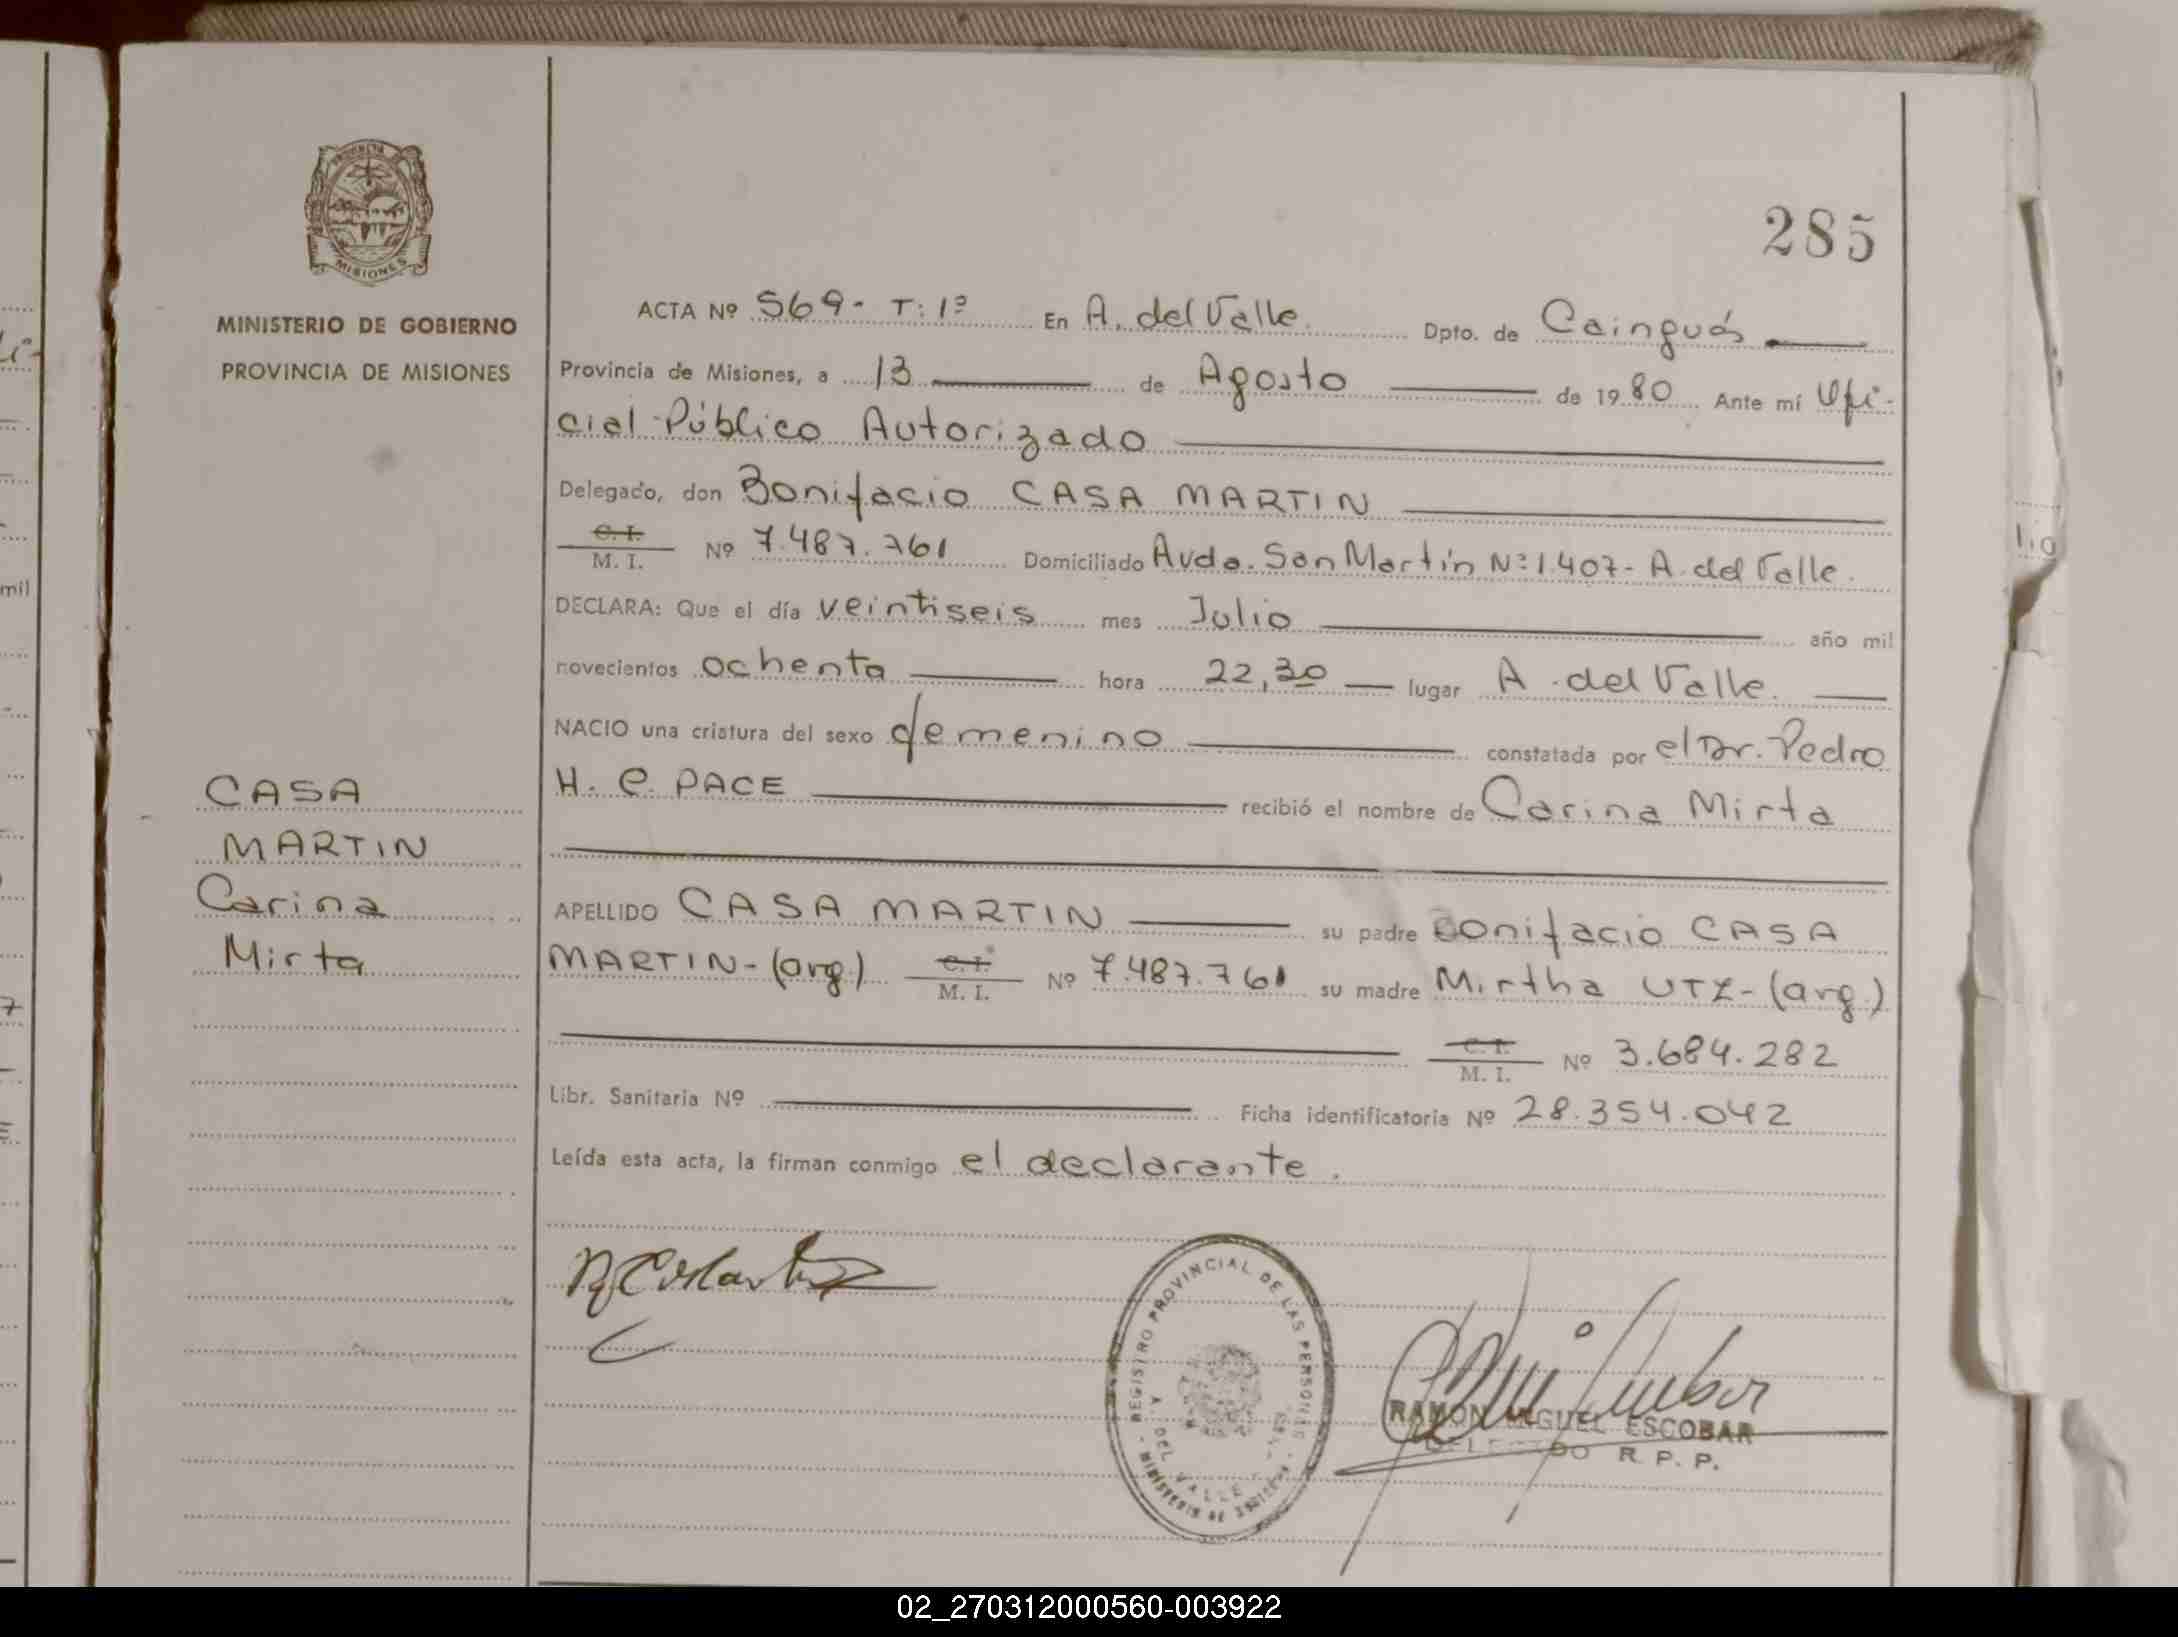 PROVINCIA DE
MISIONES
MINISTERIO DE GOBIERNO
PROVINCIA DE MISIONES
285
ACTA Nº 569- T: 1º En A. del Valle. Dpto. de Cainguás
Provincia de Misiones, a 13 de Agosto de 1980 Ante mí Ofi-
cial Público Autorizado
Delegado, don Bonifacio CASA MARTIN
C. I.
M. I. Nº 7.487.761 Domiciliado Avda. San Martín Nº 1.407- A. del Valle.
DECLARA: Que el día veintiseis mes Julio año mil
novecientos ochenta hora 22,30 lugar A. del Valle.
NACIO una criatura del sexo femenino constatada por el Dr. Pedro
H. C. PACE recibió el nombre de Carina Mirta
CASA
MARTIN
Carina
Mirta
APELLIDO CASA MARTIN su padre Bonifacio CASA
MARTIN- (arg.) C. I. M. I. Nº 7.487.761 su madre Mirtha UTZ- (arg.)
C. I.
M. I. Nº 3.684.282
Libr. Sanitaria Nº Ficha identificatoria Nº 28.354.042
Leída esta acta, la firman conmigo el declarante.
REGISTRO PROVINCIAL DE LAS PERSONAS
A. DEL VALLE
RAMON MIGUEL ESCOBAR
DELEGADO R. P. P.
mil
02_270312000560-003922